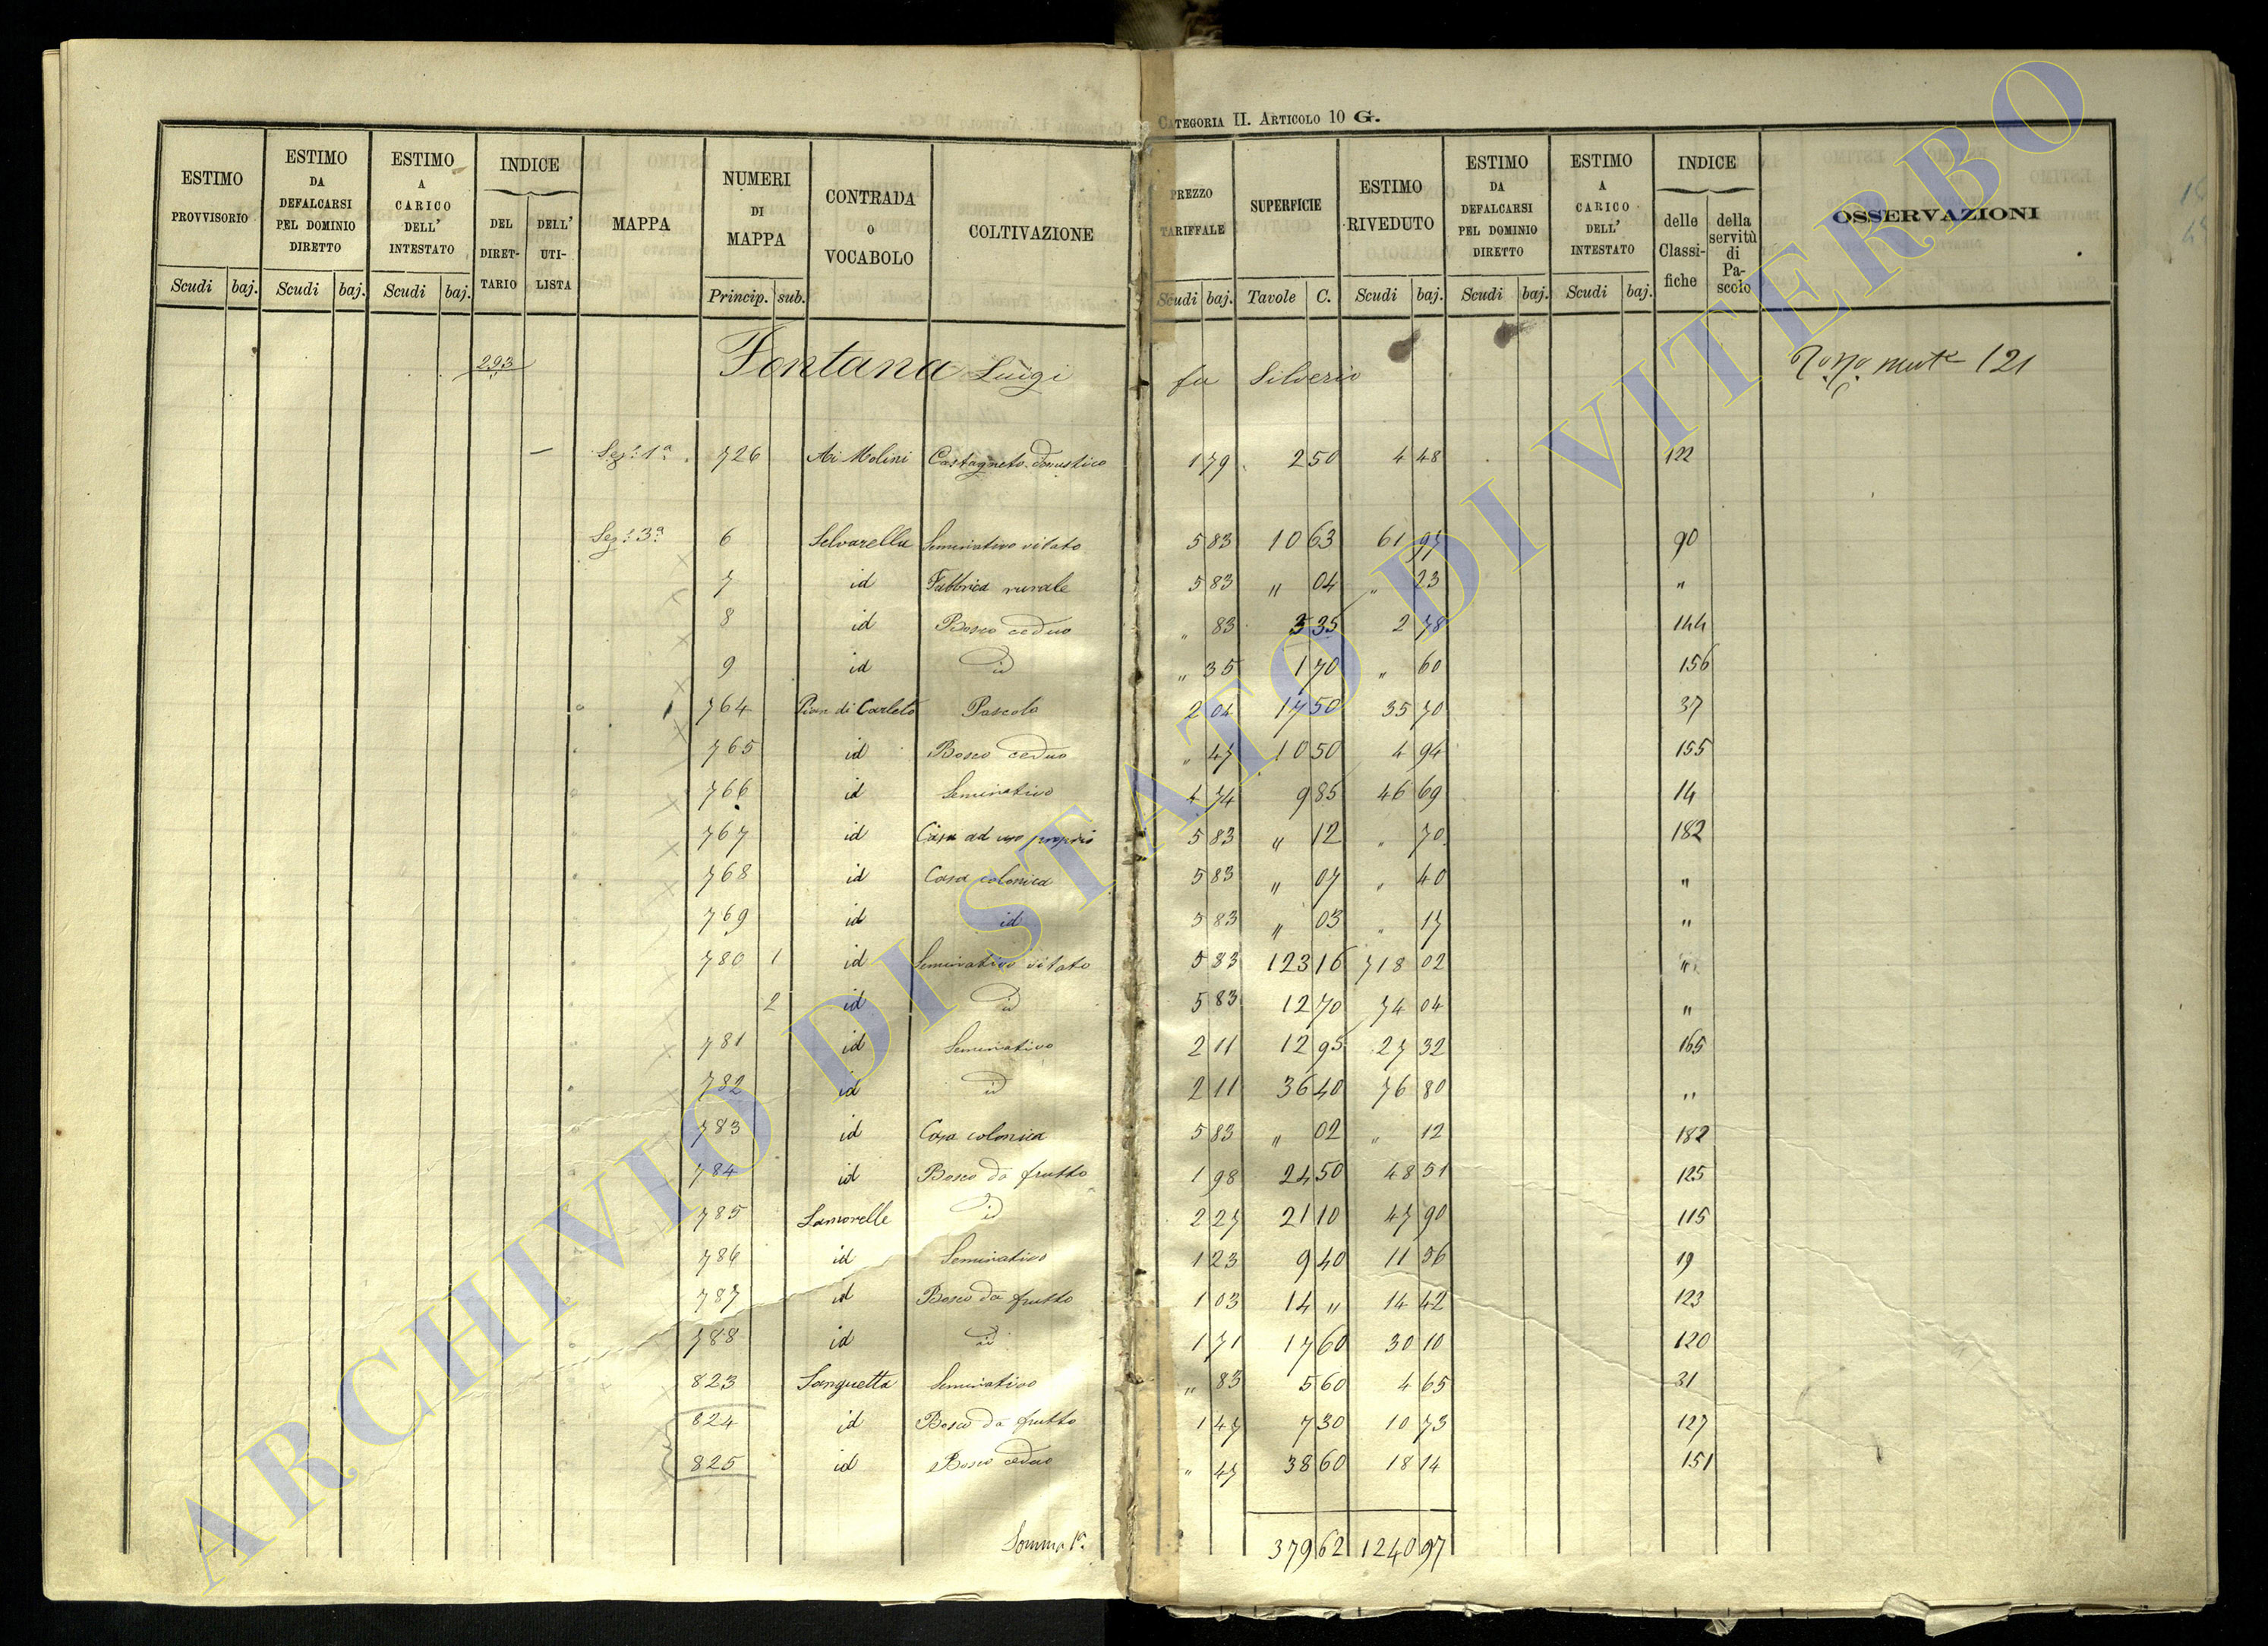 CATEGORIA II. ARTICOLO 10 G.
ESTIMO PROVVISORIO Scudi baj.
ESTIMO DA DEFALCARSI PEL DOMINIO DIRETTO Scudi baj.
ESTIMO A CARICO DELL' INTESTATO Scudi baj.
INDICE DEL DIRET-TARIO DELL' UTI-LISTA
MAPPA
NUMERI DI MAPPA Princip. sub.
CONTRADA o VOCABOLO
COLTIVAZIONE
PREZZO TARIFFALE Scudi baj.
SUPERFICIE Tavole C.
ESTIMO RIVEDUTO Scudi baj.
ESTIMO DA DEFALCARSI PEL DOMINIO DIRETTO Scudi baj.
ESTIMO A CARICO DELL' INTESTATO Scudi baj.
INDICE delle Classi-fiche della servitù di Pa-scolo
OSSERVAZIONI
293 Fontana Luigi fu Silverio 121
— Sez. 1ª 726 Ai Molini Castagneto domestico 1 79 2 50 4 48 122
Sez. 3ª 6 Selvarella Seminativo vitato 5 83 10 63 61 97 90
7 id Fabbrica rurale 5 83 " 04 " 23 "
8 id Bosco ceduo " 83 3 35 2 78 144
9 id id " 35 1 70 " 60 156
764 Pian di Carleto Pascolo 2 04 17 50 35 70 37
765 id Bosco ceduo " 47 10 50 4 94 155
766 id Seminativo 4 74 9 85 46 69 14
767 id Casa ad uso proprio 5 83 " 12 " 70 182
768 id Casa colonica 5 83 " 07 " 40 "
769 id id 5 83 " 03 " 17 "
780 1 id Seminativo vitato 5 83 123 16 718 02 "
2 id id 5 83 12 70 74 04 "
781 id Seminativo 2 11 12 95 27 32 165
782 id id 2 11 36 40 76 80 "
783 id Casa colonica 5 83 " 02 " 12 182
784 id Bosco da frutto 1 98 24 50 48 51 125
785 Lamorelle id 2 27 21 10 47 90 115
786 id Seminativo 1 23 9 40 11 56 19
787 id Bosco da frutto 1 03 14 " 14 42 123
788 id id 1 71 17 60 30 10 120
823 Sanguetta Seminativo " 83 5 60 4 65 31
824 id Bosco da frutto 1 47 7 30 10 73 127
825 id Bosco ceduo " 47 38 60 18 14 151
Somma 1ª 379 62 1240 97
ARCHIVIO DI STATO DI VITERBO